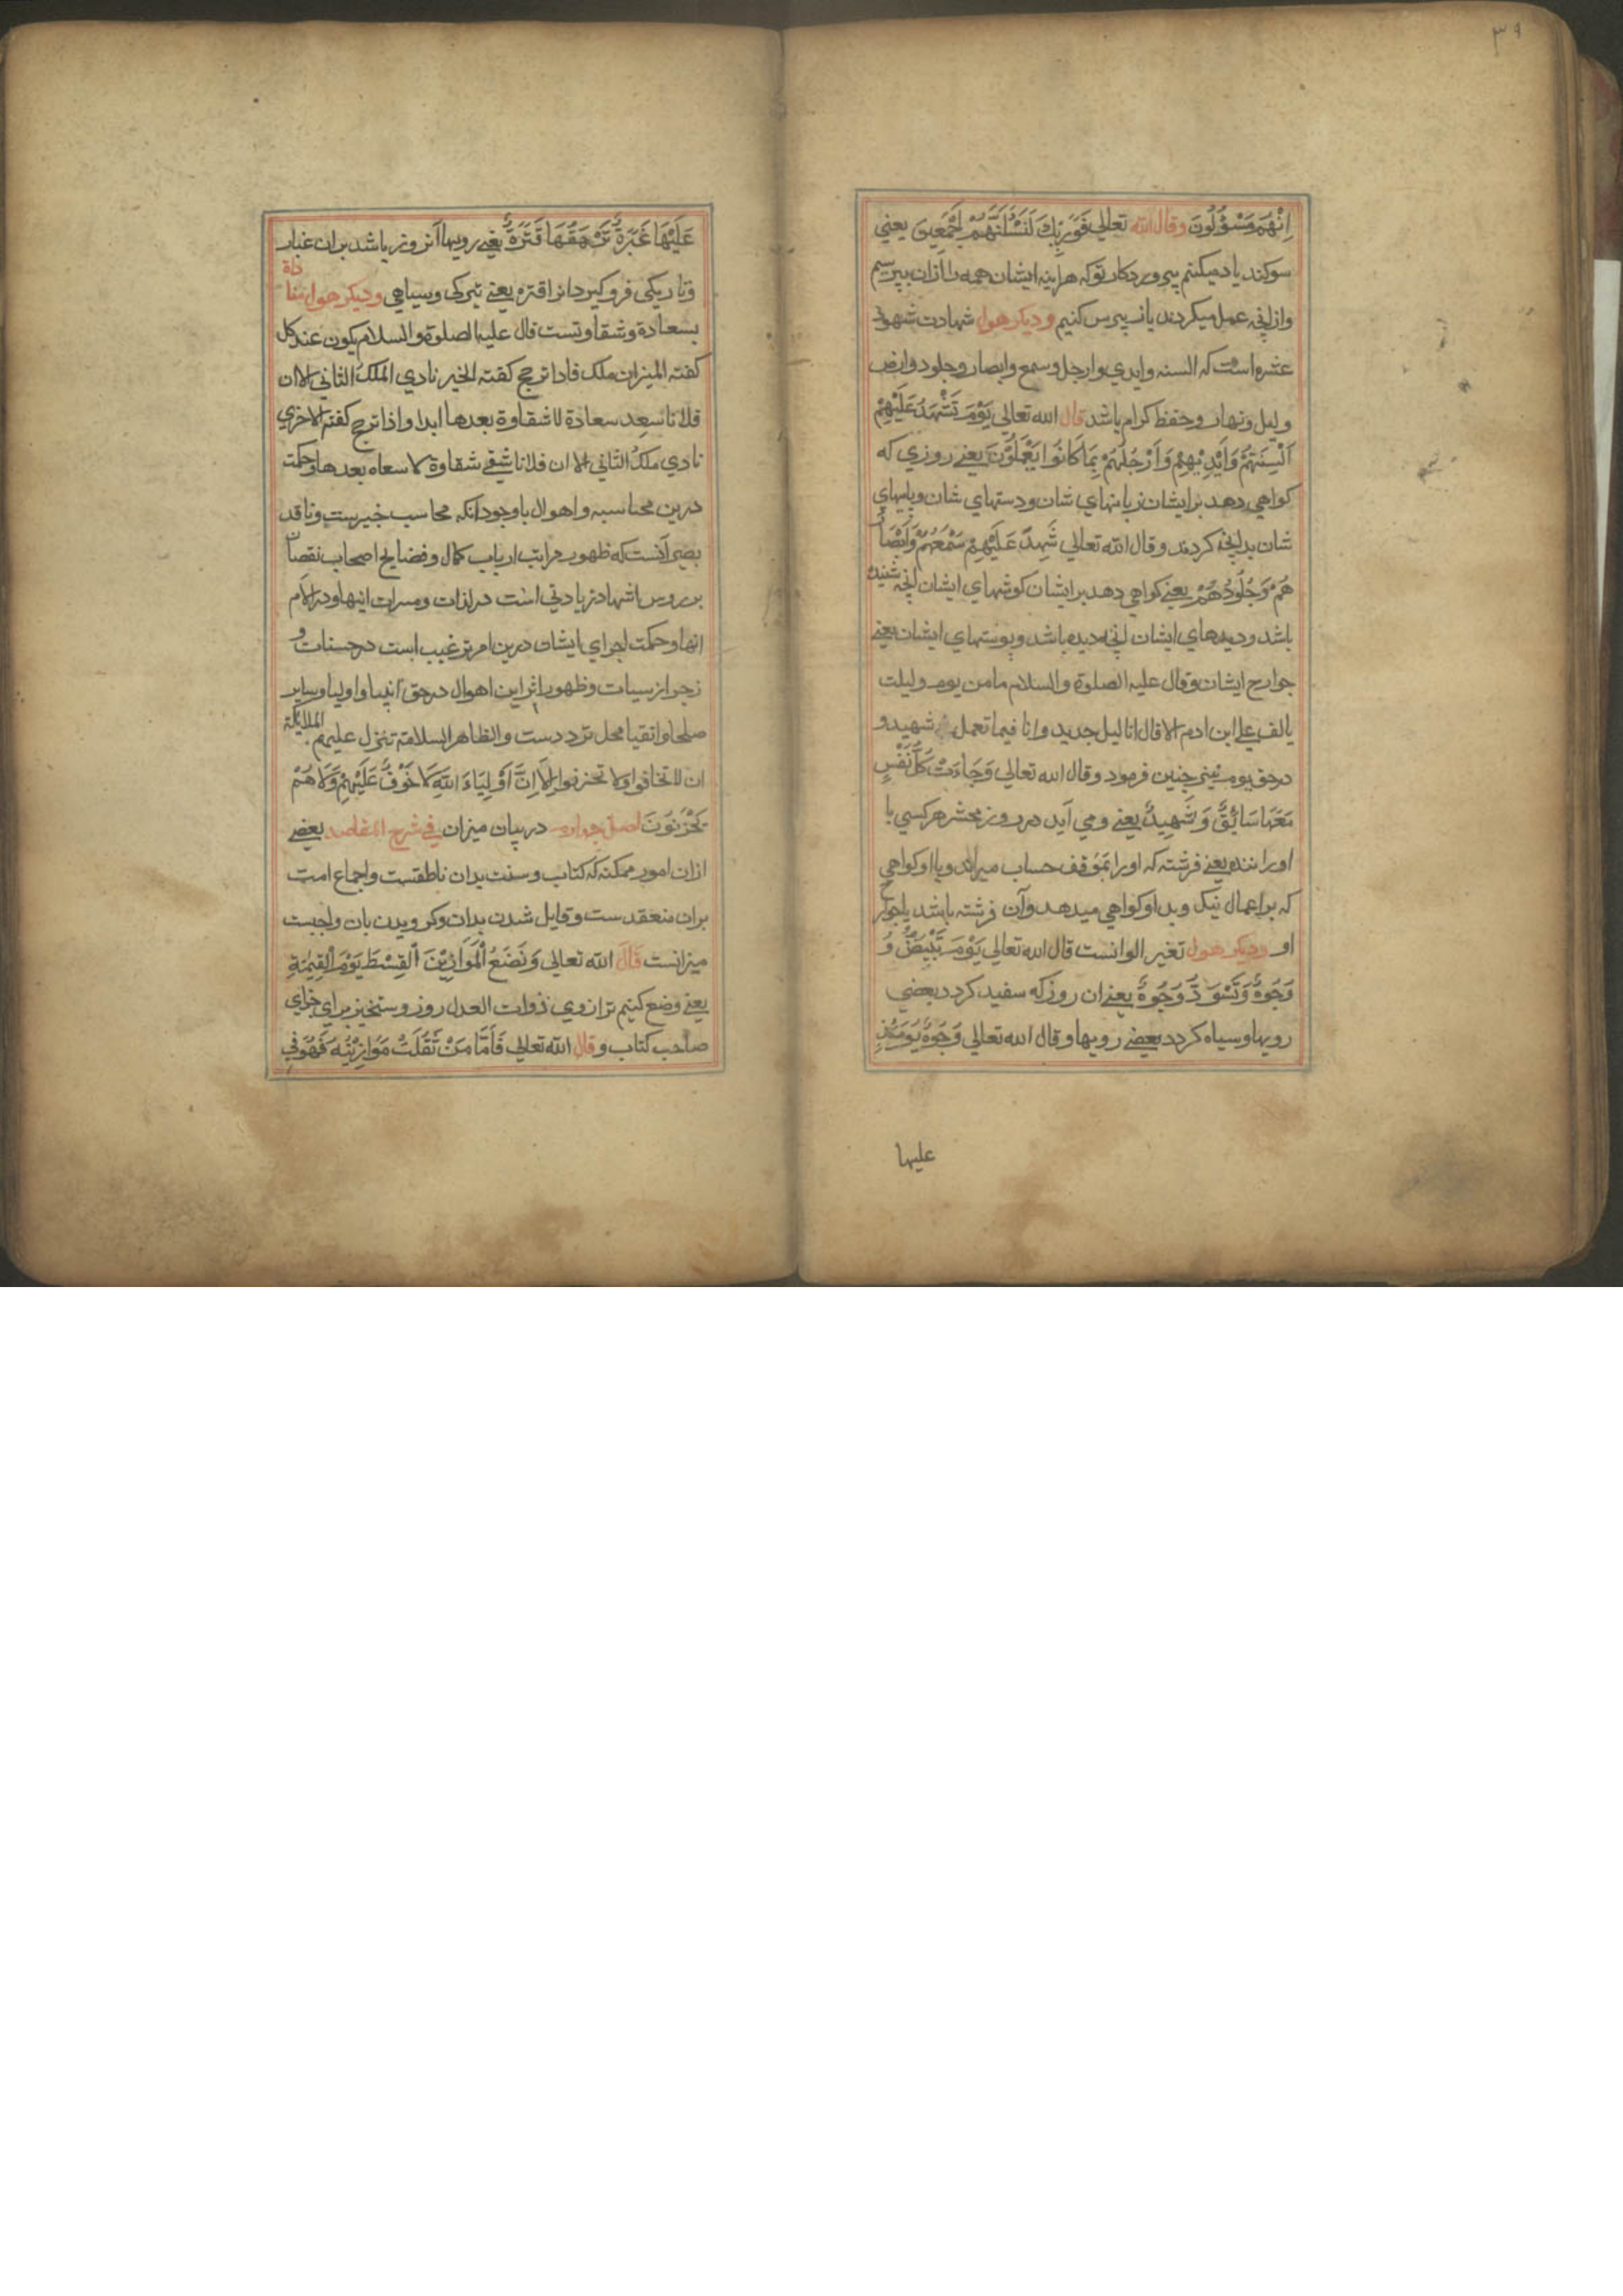 ٣٩
اِنَّهُمْ مَسْؤُلُونَ وقال الله تعالي فَوَرَبِّكَ لَنَسْئَلَنَّهُمْ اَجْمَعِينَ يعني
سوكند ياد ميكنم بپروردكار توكه هراينه ايشان همه را ازان بپرسيم
وازانچه عمل ميكردند بازپرس كنيم وديكر هول شهادت شهود
عشره است كه السنه وايدي وارجل وسمع وابصار وجلود وارض
وليل ونهار وحفظ كرام باشد قال الله تعالي يَوْمَ تَشْهَدُ عَلَيْهِمْ
اَلْسِنَتُهُمْ وَاَيْدِيْهِمْ وَاَرْجُلُهُمْ بِمَا كَانُوا يَعْمَلُوْنَ يعني روزي كه
كواهي دهد برايشان زبانهاي شان ودستهاي شان وپايهاي
شان بدانچه كردند وقال الله تعالي شَهِدَ عَلَيْهِمْ سَمْعُهُمْ وَاَبْصَا
هُمْ وَجُلُودُهُمْ يعني كواهي دهد برايشان كوشهاي ايشان انچه شنيده
باشد وديدهاي ايشان انچه ديده باشد وپوستهاي ايشان يعني
جوارح ايشان وقال عليه الصلوة والسلام مامن يوم وليلت
يالف علي ابن ادم الا قال انا ليل جديد وانا فيما تعمل شهيد و
درحق يوم نيز چنين فرمود وقال الله تعالي وَجَاءَتْ كُلُّ نَفْسٍ
مَعَهَا سَائِقٌ وَشَهِيدٌ يعني ومي آيد در روز محشر هركسي با
اوراننده يعني فرشته كه اورا بموقف حساب ميراند وبا اوكواهي
كه براعمال نيك وبد اوكواهي ميدهد وآن فرشته باشد ياجوارح
او وديكر هول تغير الوانست قال الله تعالي يَوْمَ تَبْيَضُّ وُ
وُجُوهٌ وَتَسْوَدُّ وُجُوهٌ يعني ان روز كه سفيد كردد بعضي
رويها وسياه كردد بعضي رويها وقال الله تعالي وُجُوهٌ يَوْمَئِذٍ
عليها
عَلَيْهَا غَبَرَةٌ تَرْهَقُهَا قَتَرَةٌ يعني رويها آنروز باشد بران غبار
وتاريكي فروكيرد انرا قتره يعني تيركي وسياهي وديكر هول مناداة
بسعادة وشقاوتست قال عليه الصلوة والسلام يكون عند كل
كفته الميزان ملك فاذا ترجح كفته الخير نادي الملك الثاني الا ان
فلانا سعد سعادة لا شقاوة بعدها ابدا واذا ترجح كفته الاخري
نادي ملك الثاني الا ان فلانا شقي شقاوة لا سعاه بعدها وحكمت
درين محاسبه واهوال باوجود انكه محاسب خبيرست وناقد
بصير آنست كه ظهور مراتب ارباب كمال وفضايح اصحاب نقصان
بر روس اشهاد زيادتي است در لذات ومسرات اينها ودر الآم
انها وحكمت اجراي ايشان درين امر ترغيب است در حسنات و
زجر از سيات وظهور اثر اين اهوال درحق انبيا واوليا وساير
صلحا واتقيا محل ترددست والظاهر السلامة تتنزل عليهم الملائكة
ان لا تخافوا ولا تحزنوا الا اِنَّ اَوْلِيَاءَ اللهِ لَا خَوْفٌ عَلَيْهِمْ وَلَا هُمْ
يَحْزَنُونَ اصل چهاردهم در بيان ميزان في شرح المقاصد بعضي
ازان امور ممكنه كه كتاب وسنت بدان ناطقست واجماع امت
بران منعقدست وقايل شدن بدان وكرويدن بان واجبست
ميزانست قال الله تعالي وَنَضَعُ الْمَوَازِيْنَ الْقِسْطَ يَوْمَ الْقِيٰمَةِ
يعني وضع كنيم ترازوي ذوات العدل روز رستخيز براي جزاي
صاحب كتاب وقال الله تعالي فَاَمَّا مَنْ ثَقُلَتْ مَوَازِيْنُهُ فَهُوَ فِي